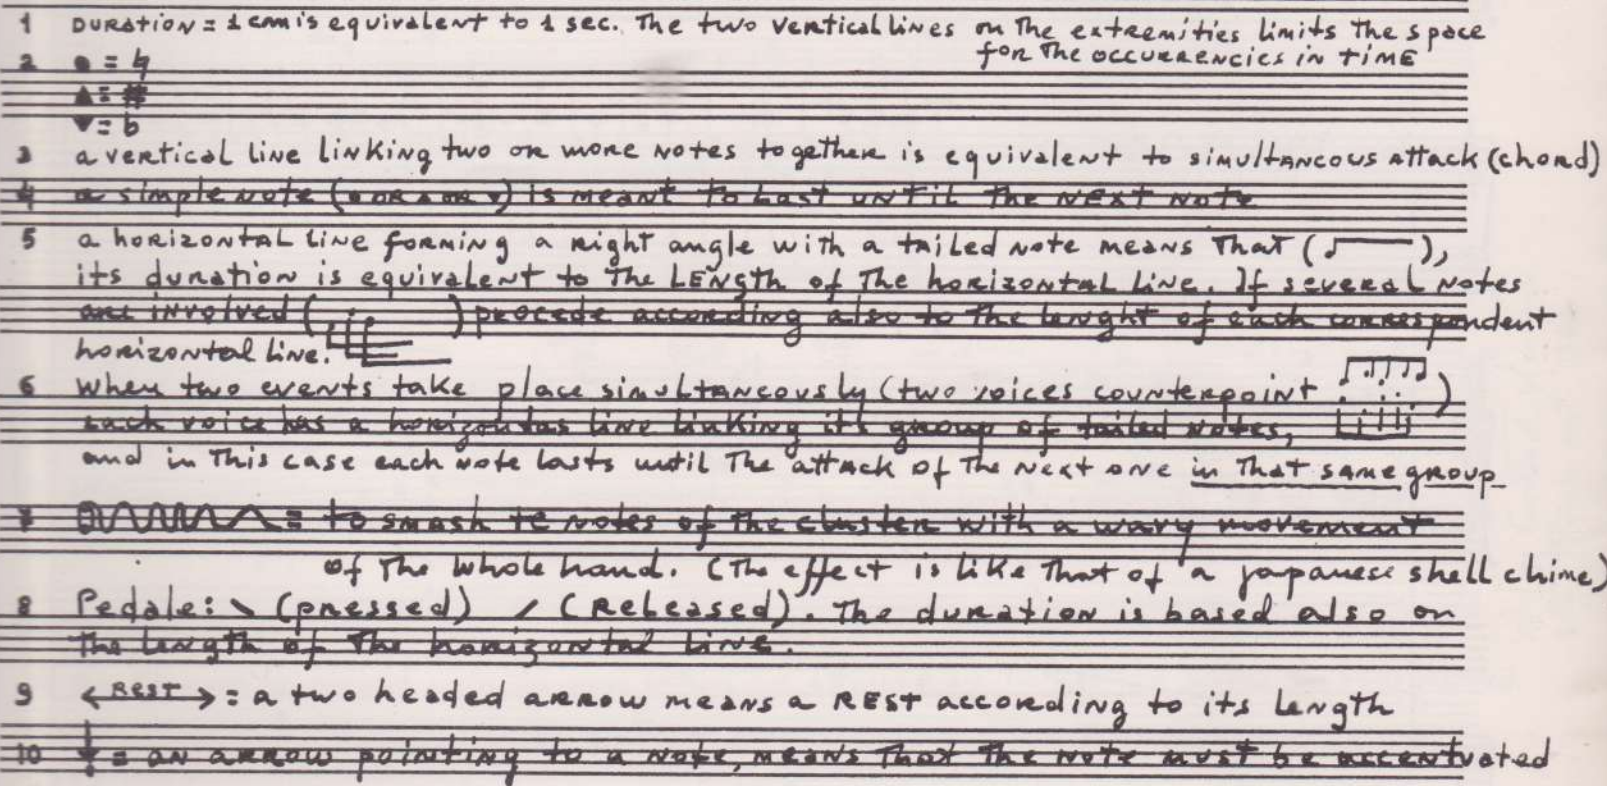 1 DURATION = 1 cm is equivalent to 1 sec. The two vertical lines on the extremities limits the space
for the occurrencies in time
2 ● = ♮
▲ = #
▼ = b
3 a vertical line linking two or more notes together is equivalent to simultaneous attack (chord)
4 a simple note (● or ▲ or ▼) is meant to last until the next note
5 a horizontal line forming a right angle with a tailed note means that ( ),
its duration is equivalent to the length of the horizontal line. If several notes
are involved ( ) procede according also to the lenght of each correspondent
horizontal line.
6 When two events take place simultaneously (two voices counterpoint )
each voice has a horizontal line linking its group of tailed notes,
and in this case each note lasts until the attack of the next one in that same group
7 = to smash te notes of the cluster with a wavy movement
of the whole hand. (The effect is like that of a japanese shell chime)
8 Pedale: \ (pressed) / (Released). The duration is based also on
the length of the horizontal line.
9 <REST> = a two headed arrow means a REST according to its length
10 = an arrow pointing to a note, means that the note must be accentuated